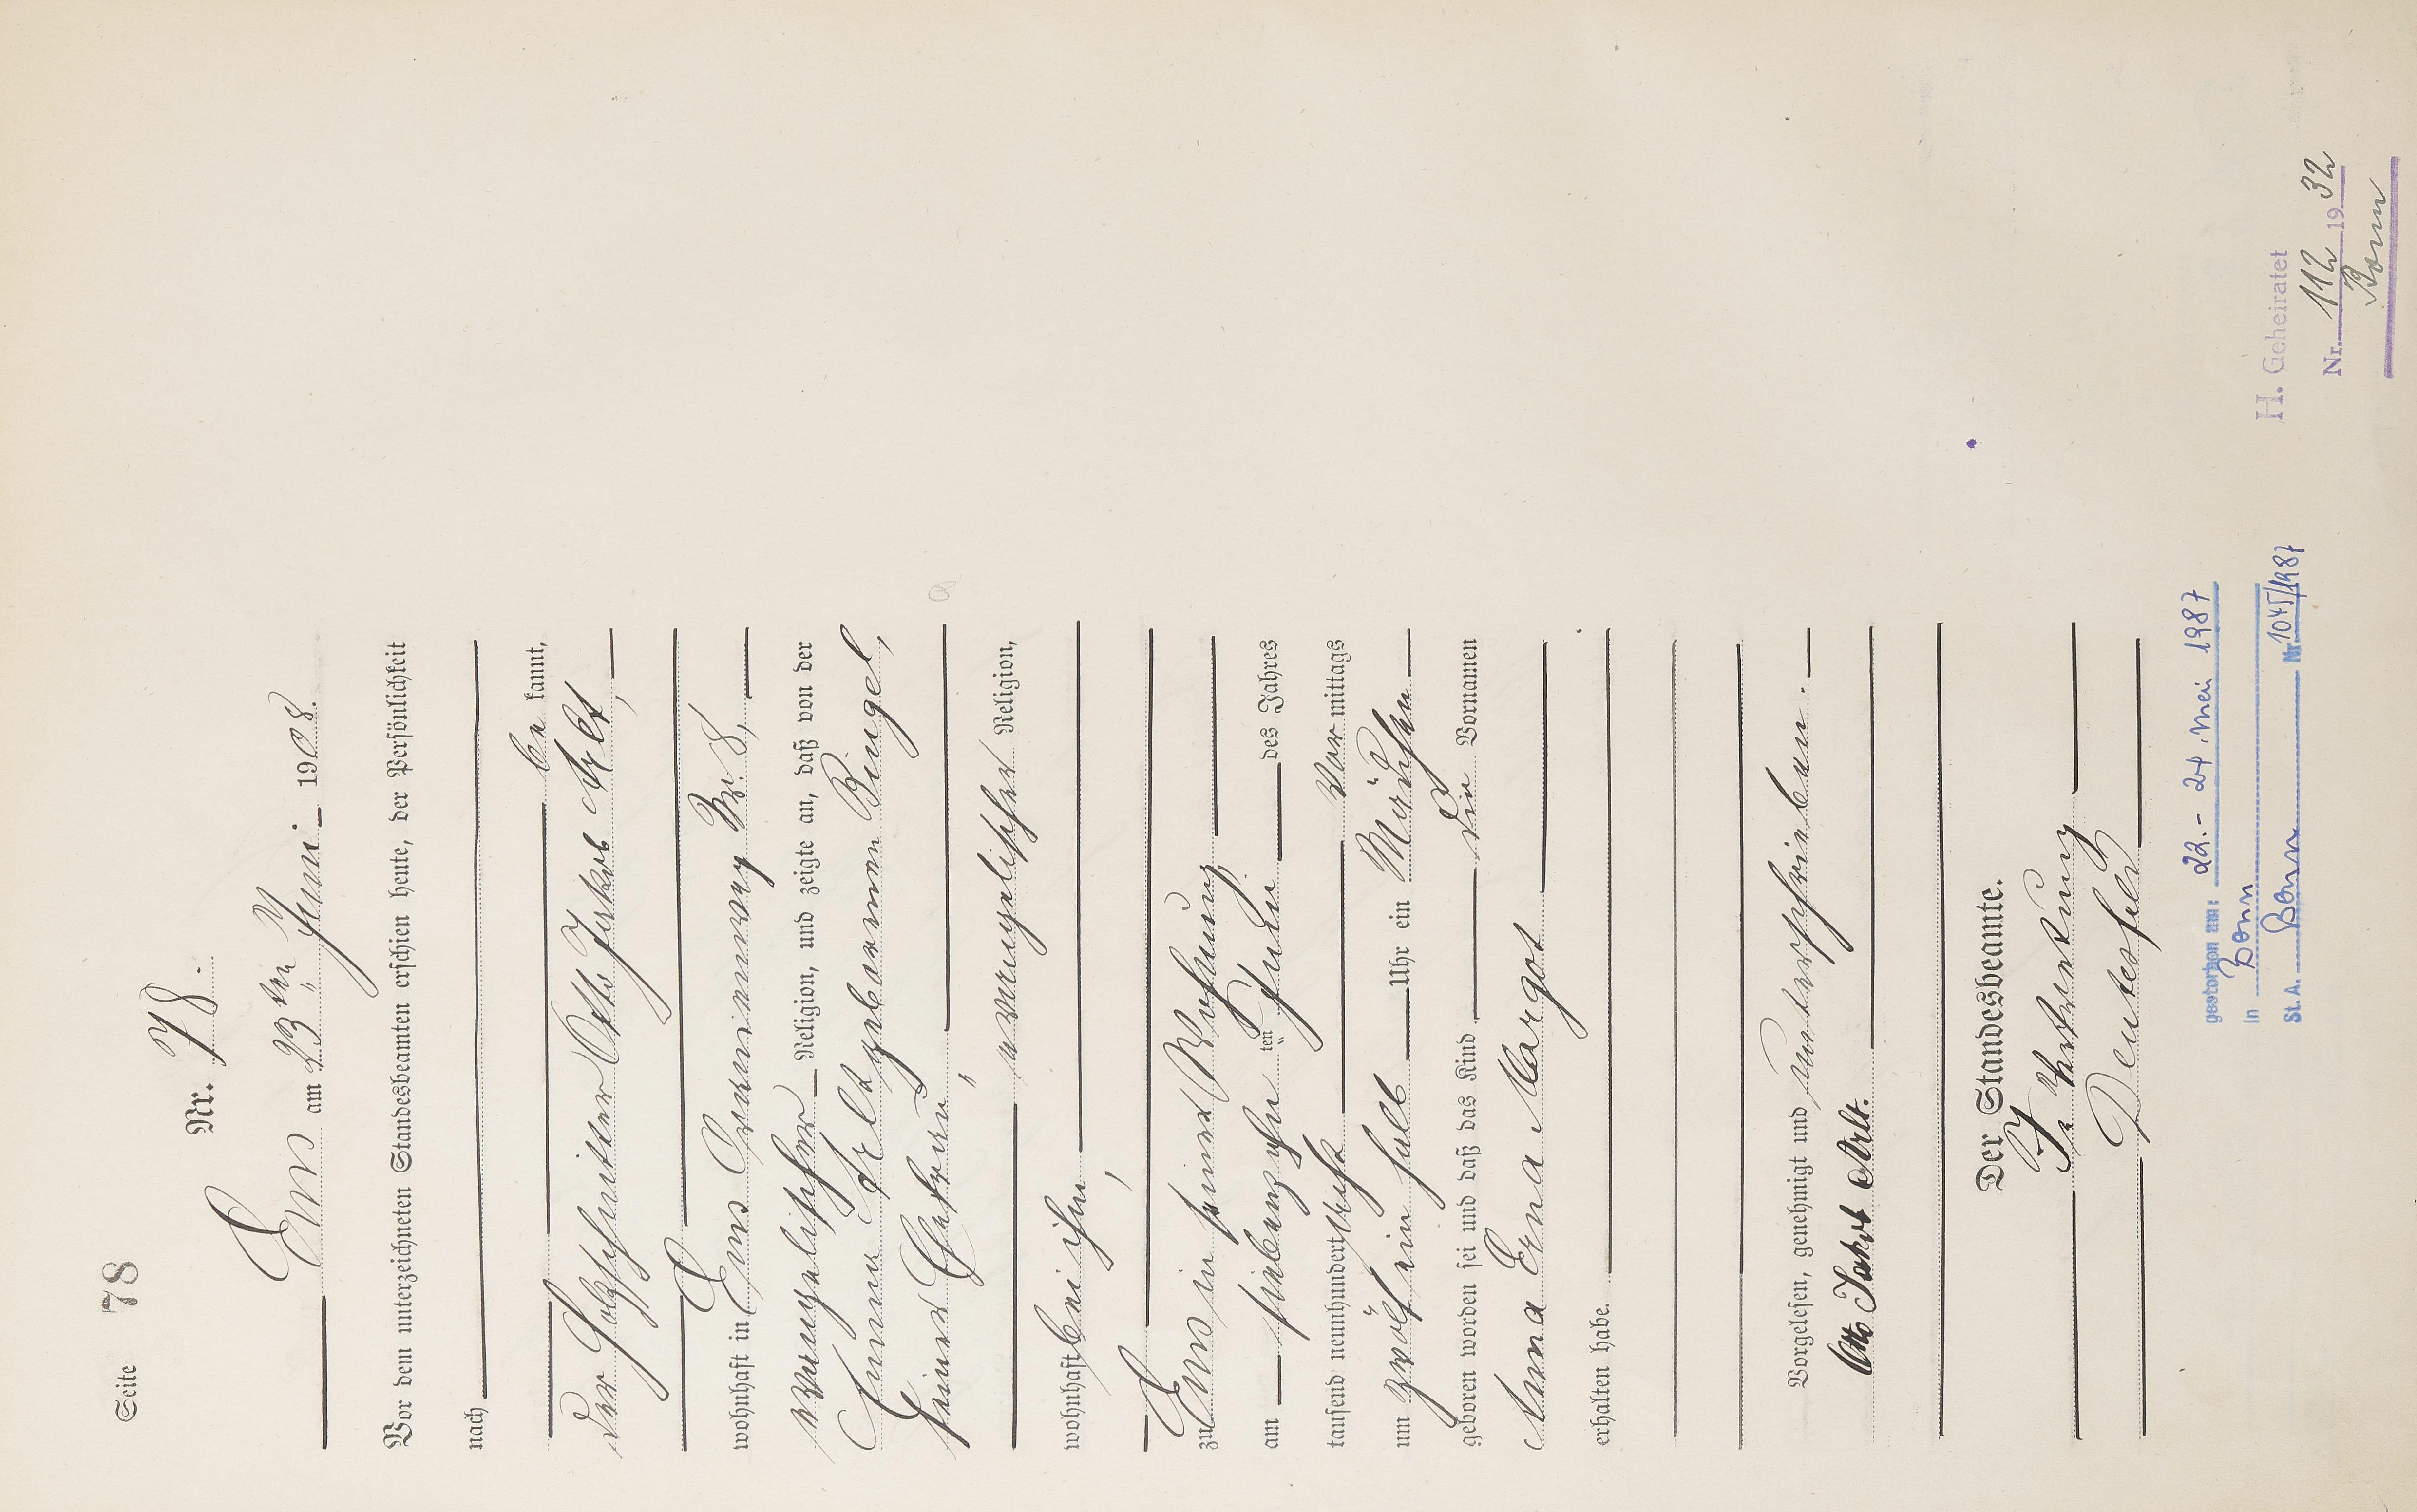 Seite 78
Nr. 78.
Ems am 23ten Juni 1908.
Vor dem unterzeichneten Standesbeamten erschien heute, der Persönlichkeit
nach
be kannt,
der Holzschneider Otto Jakob Arlt,
wohnhaft in Ems Nr. 8,
evangelischer Religion, und zeigte an, daß von der
Anna Arlt geborenen Bingel,
seiner Ehefrau,
evangelischer Religion,
wohnhaft bei ihm,
zu Ems in seiner Wohnung,
am siebenzehnten Juni des Jahres
tausend neunhundert acht Vor mittags
um zwölf ein halb Uhr ein Mädchen
geboren worden sei und daß das Kind die Vornamen
Anna Erna Margot
erhalten habe.
Vorgelesen, genehmigt und unterschrieben.
Otto Jakob Arlt.
Der Standesbeamte.
In Vertretung
gestorben am: 22.- 24. Mai 1987
in Bonn
St. A. Bonn Nr. 1045/1987
H. Geheiratet
Nr. 112 1932
Bonn